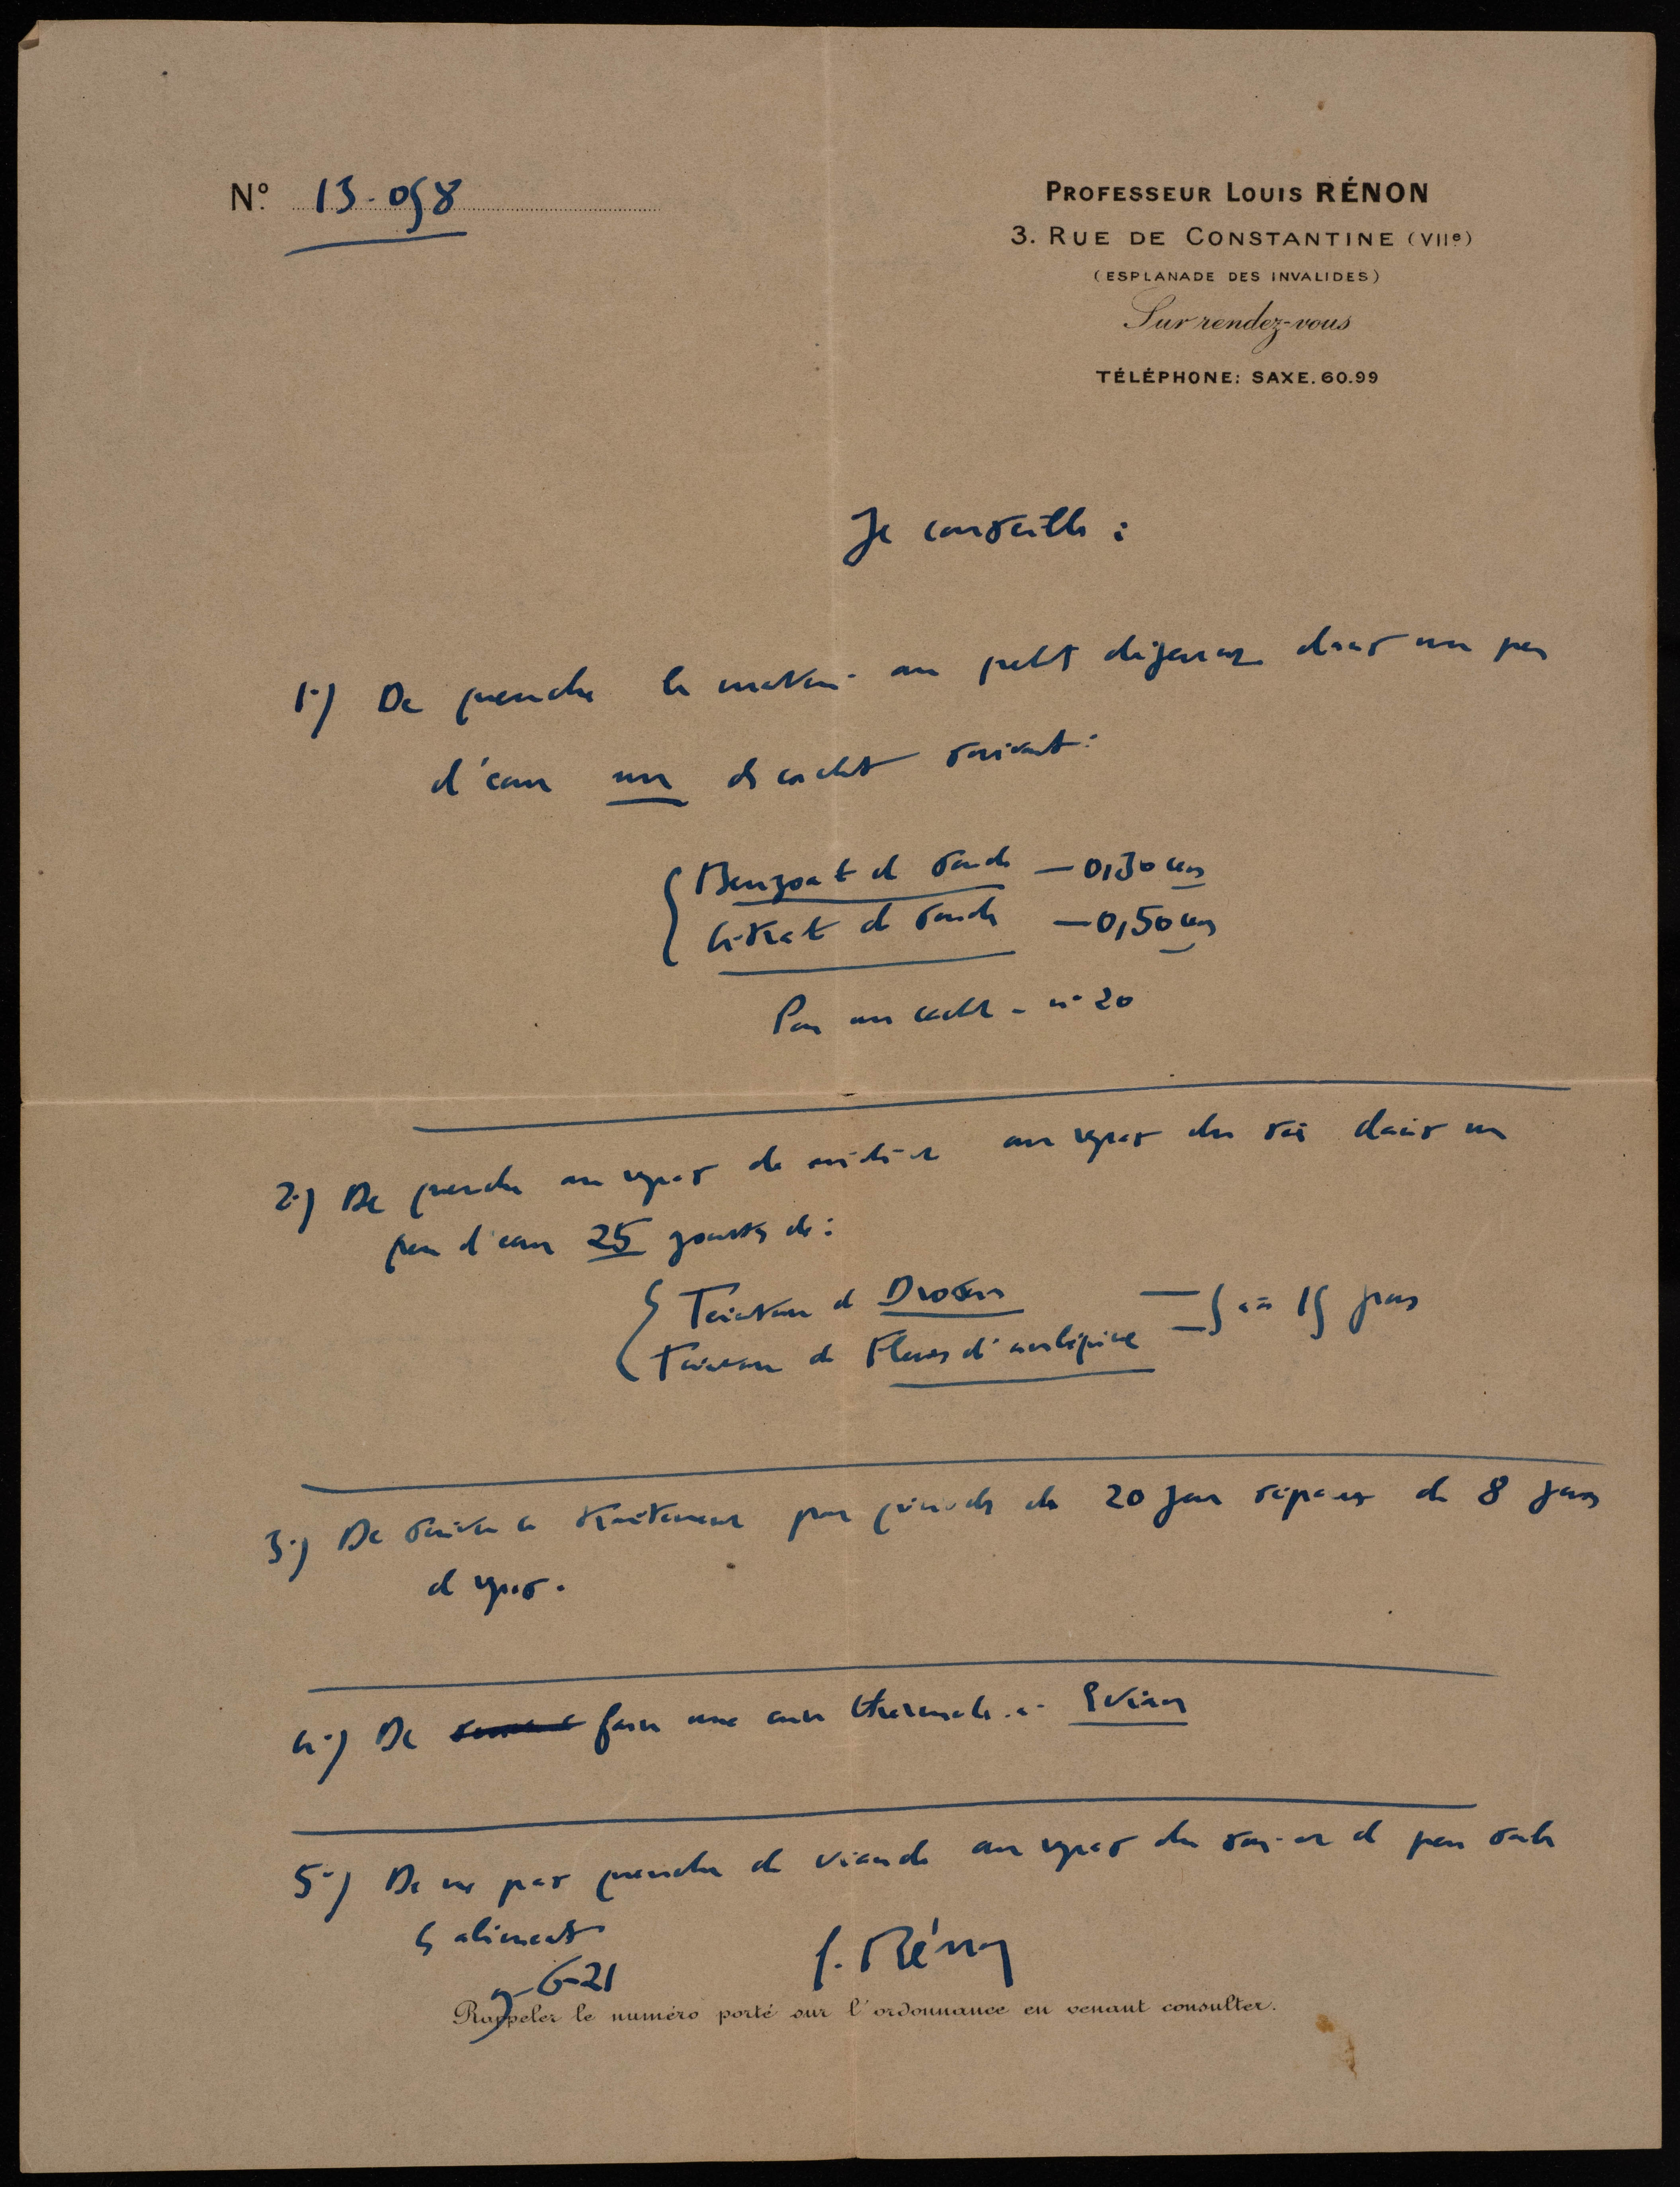 N° 13.058
PROFESSEUR LOUIS RÉNON
3. RUE DE CONSTANTINE (VIIe)
(ESPLANADE DES INVALIDES)
Sur rendez-vous
TÉLÉPHONE: SAXE. 60.99
Je conseille :
1°) De prendre le matin au petit déjeuner dans un peu
d'eau un des cachets suivants :
Benzoate de soude — 0,30 cgr
Citrate de soude — 0,50 cgr
Pour un cachet - n° 20
2°) De prendre au repas de midi et au repas du soir dans un
peu d'eau 25 gouttes de :
Teinture de Drosera
Teinture de Fleurs d'aubépine — āā 15 grs
3°) De suivre ce traitement par périodes de 20 jours séparées de 8 jours
de repos.
4°) De faire une cure thermale à Evian
5°) De ne pas prendre de viande au repas du soir et de peu saler
les aliments
-6-21
L. Rénon
Rappeler le numéro porté sur l'ordonnance en venant consulter.